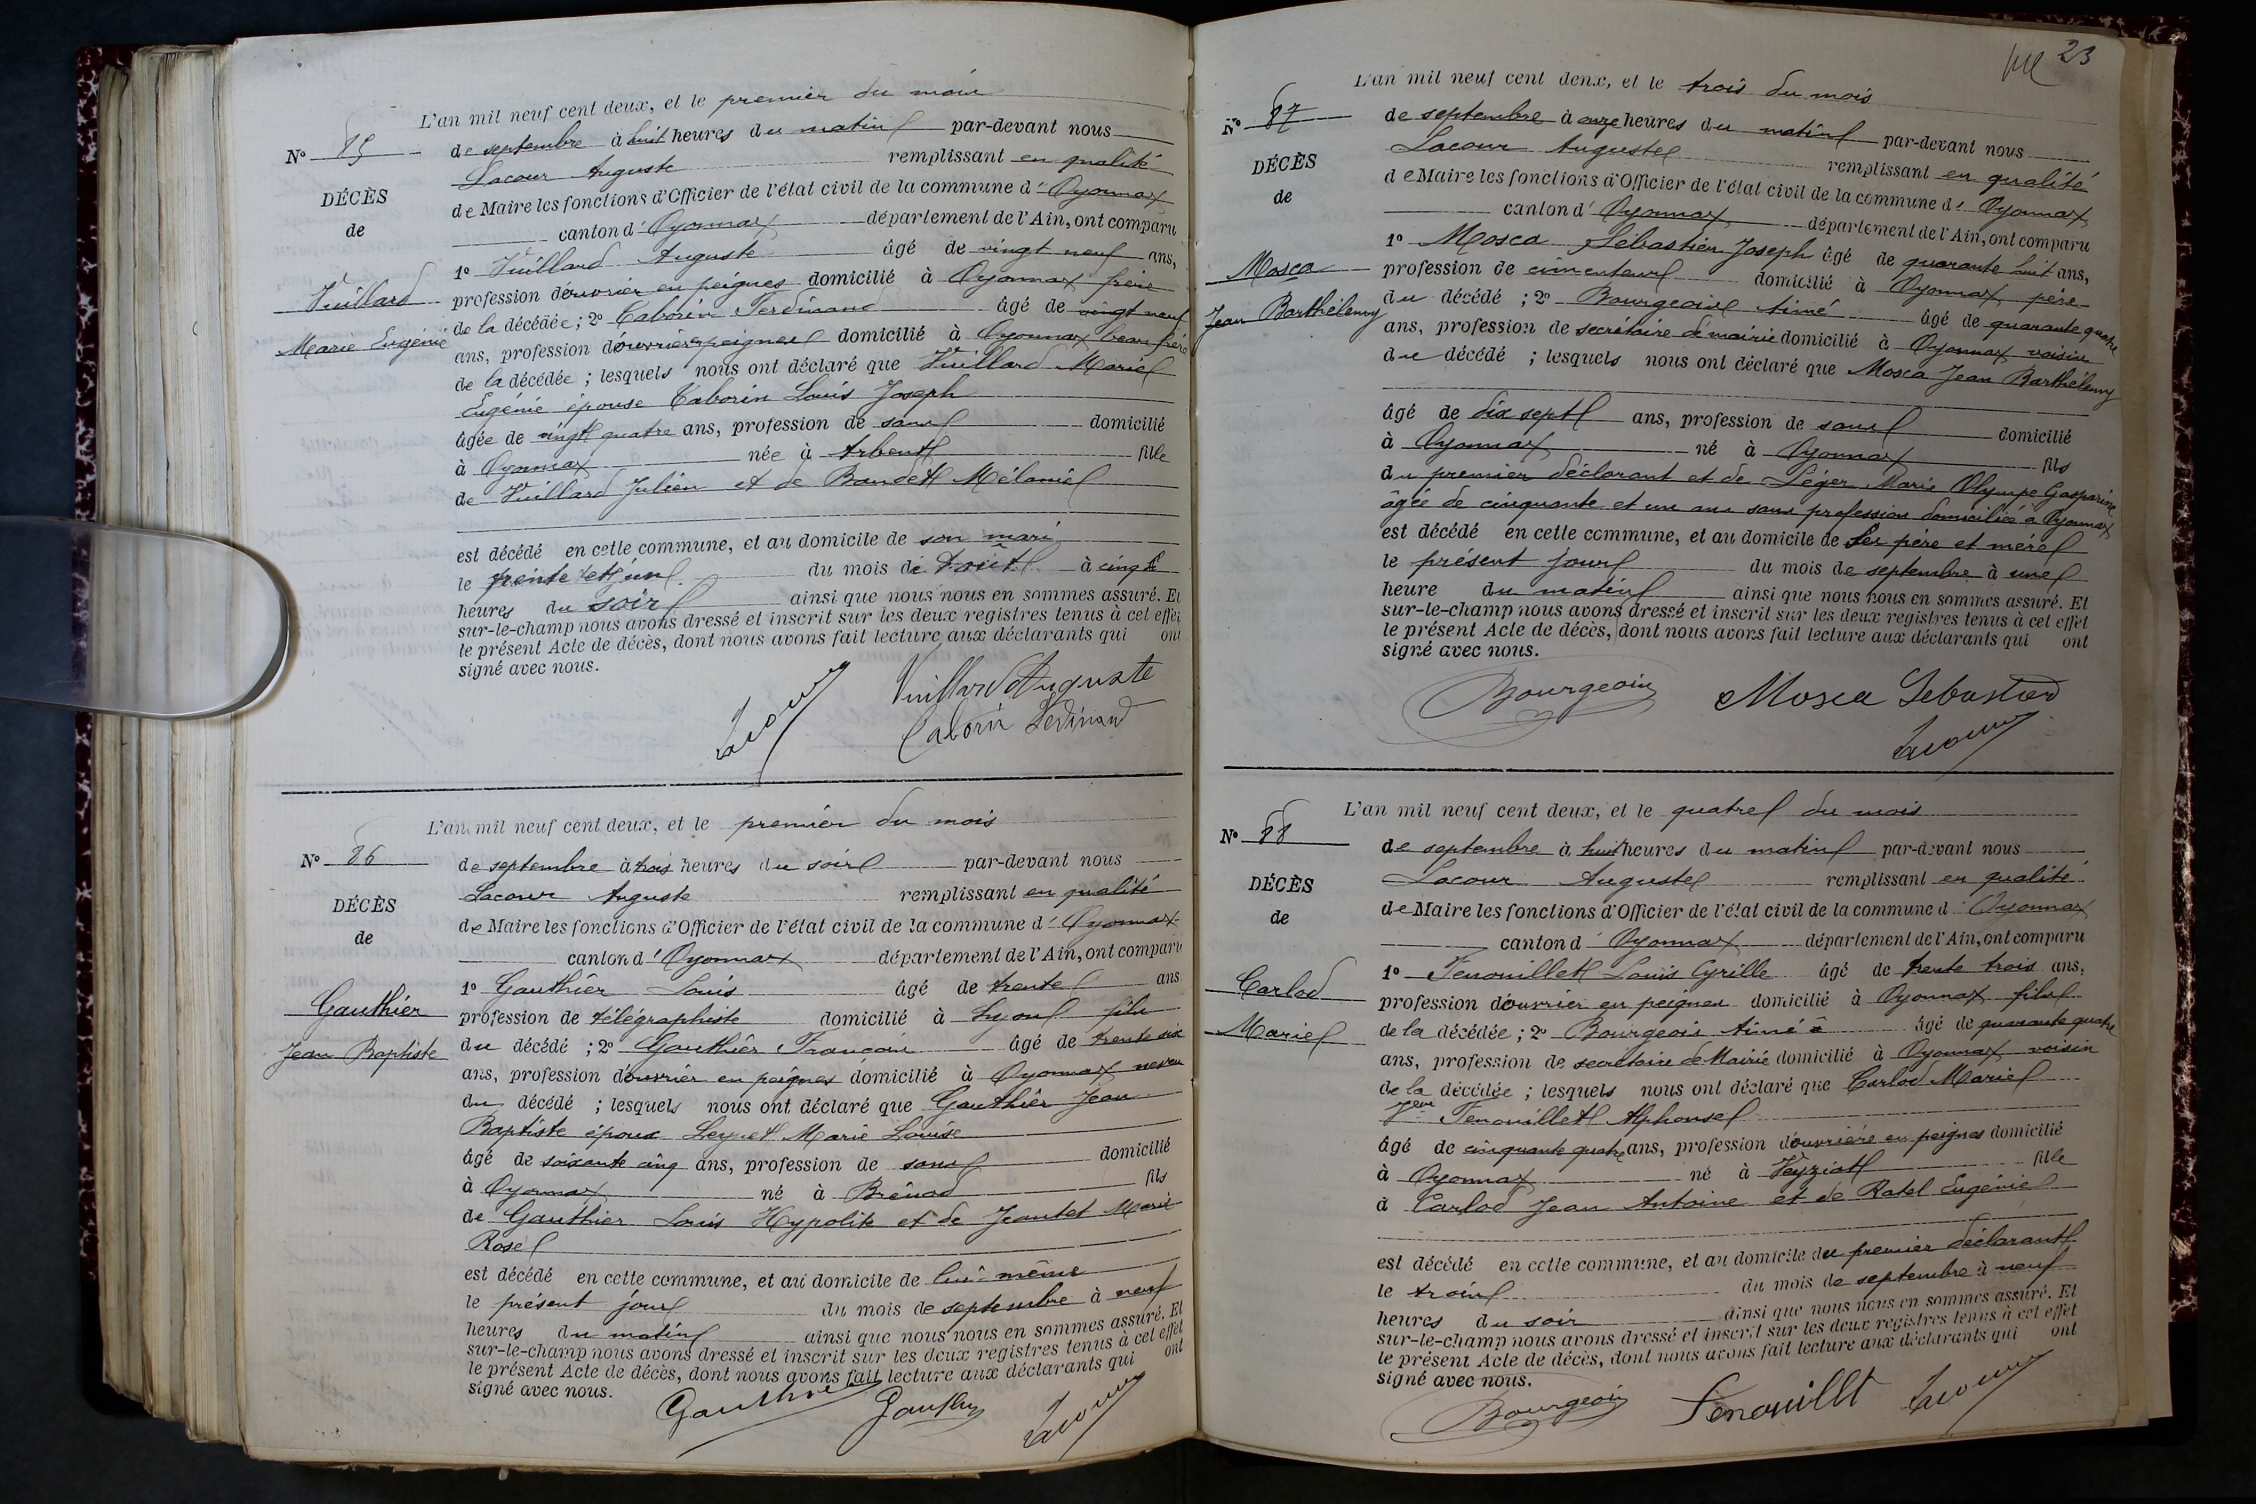 L'an mil neuf cent deux, et le premier du mois
N° 85
de septembre à huit heures du matin par-devant nous
Lacour Auguste remplissant en qualité
DÉCÈS
de Maire les fonctions d'Officier de l'état civil de la commune d'Oyonnax
de
canton d'Oyonnax département de l'Ain, ont comparu
1° Vuillard Auguste âgé de vingt neuf ans,
Vuillard
profession d'ouvrier en peignes domicilié à Oyonnax frère
de la décédée; 2° Taborin Ferdinand âgé de vingt neuf
Marie Eugénie
ans, profession d'ouvrier en peignes domicilié à Oyonnax beau frère
de la décédée; lesquels nous ont déclaré que Vuillard Marie
Eugénie épouse Taborin Louis Joseph
âgée de vingt quatre ans, profession de sans domicilié
à Oyonnax née à Arbent fille
de Vuillard Julien et de Baudet Mélanie
est décédé en cette commune, et au domicile de son mari
le trente et un du mois d'août à cinq
heures du soir ainsi que nous nous en sommes assuré. Et
sur-le-champ nous avons dressé et inscrit sur les deux registres tenus à cet effet
le présent Acte de décès, dont nous avons fait lecture aux déclarants qui ont
signé avec nous.
Vuillard Auguste
Lacour Taborin Ferdinand
L'an mil neuf cent deux, et le premier du mois
N° 86
de septembre à trois heures du soir par-devant nous
Lacour Auguste remplissant en qualité
DÉCÈS
de Maire les fonctions d'Officier de l'état civil de la commune d'Oyonnax
de
canton d'Oyonnax département de l'Ain, ont comparu
1° Gauthier Louis âgé de trente ans
Gauthier
profession de télégraphiste domicilié à Lyon fils
du décédé; 2° Gauthier François âgé de trente six
Jean Baptiste
ans, profession d'ouvrier en peignes domicilié à Oyonnax neveu
du décédé; lesquels nous ont déclaré que Gauthier Jean
Baptiste époux Marie Louise
âgé de soixante cinq ans, profession de sans domicilié
à Oyonnax né à Brénod fils
de Gauthier Louis Hypolite et de Jeantet Marie
Rose
est décédé en cette commune, et au domicile de lui-même
le présent jour du mois de septembre à neuf
heures du matin ainsi que nous nous en sommes assuré. Et
sur-le-champ nous avons dressé et inscrit sur les deux registres tenus à cet effet
le présent Acte de décès, dont nous avons fait lecture aux déclarants qui ont
signé avec nous.
Gauthier Gauthier Lacour
23
L'an mil neuf cent deux, et le trois du mois
N° 87
de septembre à onze heures du matin par-devant nous
Lacour Auguste remplissant en qualité
DÉCÈS
de Maire les fonctions d'Officier de l'état civil de la commune d'Oyonnax
de
canton d'Oyonnax département de l'Ain, ont comparu
1° Mosca Sébastien Joseph âgé de quarante huit ans,
Mosca
profession de cimenteur domicilié à Oyonnax père
du décédé; 2° Bourgeois Aimé âgé de quarante quatre
Jean Barthélemy
ans, profession de secrétaire de mairie domicilié à Oyonnax voisin
du décédé; lesquels nous ont déclaré que Mosca Jean Barthélemy
âgé de dix sept ans, profession de sans domicilié
à Oyonnax né à Oyonnax fils
du premier déclarant et de Léger Marie Olympe Gasparine
âgée de cinquante et un ans sans profession domiciliée à Oyonnax
est décédé en cette commune, et au domicile de ses père et mère
le présent jour du mois de septembre à une
heure du matin ainsi que nous nous en sommes assuré. Et
sur-le-champ nous avons dressé et inscrit sur les deux registres tenus à cet effet
le présent Acte de décès, dont nous avons fait lecture aux déclarants qui ont
signé avec nous.
Bourgeois Mosca Sebastien
Lacour
L'an mil neuf cent deux, et le quatre du mois
N° 88
de septembre à huit heures du matin par-devant nous
Lacour Auguste remplissant en qualité
DÉCÈS
de Maire les fonctions d'Officier de l'état civil de la commune d'Oyonnax
de
canton d'Oyonnax département de l'Ain, ont comparu
1° Fenouillet Louis Cyrille âgé de trente trois ans,
Carlod
profession d'ouvrier en peignes domicilié à Oyonnax fils
de la décédée; 2° Bourgeois Aimé âgé de quarante quatre
Marie
ans, profession de secrétaire de Mairie domicilié à Oyonnax voisin
de la décédée; lesquels nous ont déclaré que Carlod Marie
Veuve Fenouillet Alphonse
âgé de cinquante quatre ans, profession d'ouvrière en peignes domicilié
à Oyonnax né à Veyziat fille
à Carlod Jean Antoine et de Ratel Eugénie
est décédé en cette commune, et au domicile du premier déclarant
le trois du mois de septembre à neuf
heures du soir ainsi que nous nous en sommes assuré. Et
sur-le-champ nous avons dressé et inscrit sur les deux registres tenus à cet effet
le présent Acte de décès, dont nous avons fait lecture aux déclarants qui ont
signé avec nous.
Bourgeois Fenouillet Lacour